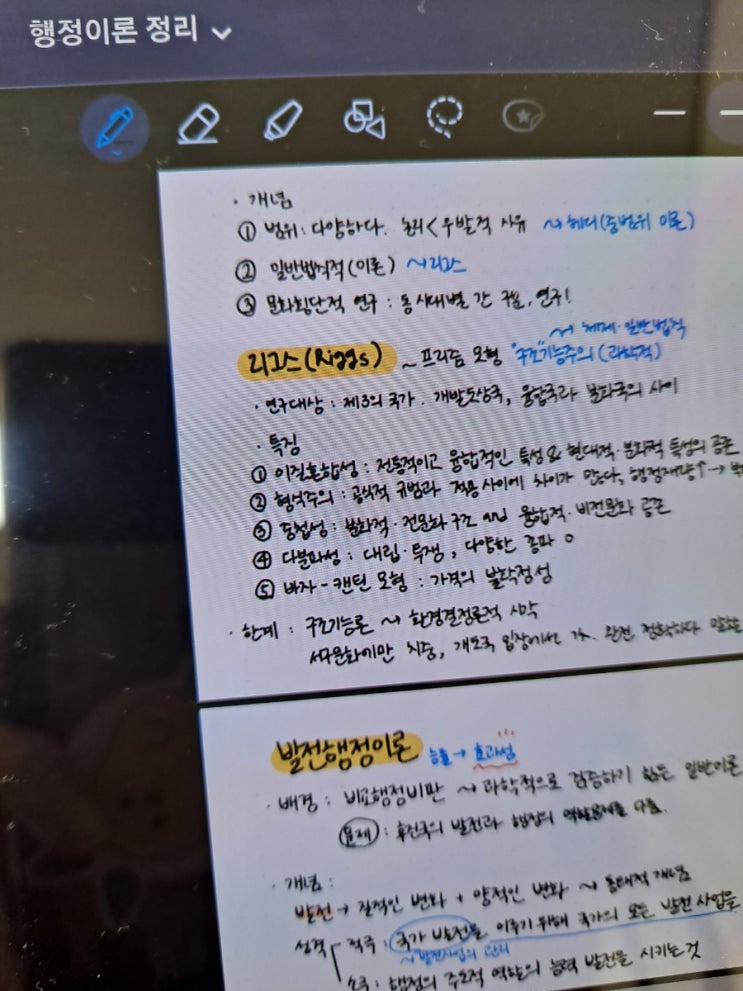 행정이론 정리
· 개념
① 범위 : 다양하다. < 우발적 사유 ~> 헤디 (중범위 이론)
② 일반법칙적 (이론) ~> 리그스
③ 문화횡단적 연구 : 동시대별 간 구분, 연구!
~> 체제·일반법칙
리그스 (Riggs) ~ 프리즘 모형 "구조"기능주의 (과학적)
· 연구대상 : 제3의 국가. 개발도상국, 융합국과 분화국의 사이
· 특징
① 이질혼합성 : 전통적이고 융합적인 특성 & 현대적·분화적 특성의 공존
② 형식주의 : 공식적 규범과 적용 사이에 차이가 많다, 행정재량↑ →
③ 중첩성 : 분화적·전문화 구조 and 융합적·비전문화 공존
④ 다분파성 : 대립·투쟁, 다양한 종파 o
⑤ 바자-캔틴 모형 : 가격의 불확정성
· 한계 : 구조기능론 ~> 환경결정론적 시각
서구문화에만 치중, 개도국 입장에서만 완전 정확하다
발전행정이론 능률 → 효과성
· 배경 : 비교행정비판 ~> 과학적으로 검증하기 힘든 일반이론
문제 : 후진국의 발전과 행정의 역할문제를 다룸.
· 개념 :
발전 → 질적인 변화 + 양적인 변화 ~> 동태적 개념
성격 : 국가 발전을 이루기 위해 국가의 모든 발전 사업을
~발전사업의 관리
: 행정의 주도적 역할의 능력 발전을 시키는 것